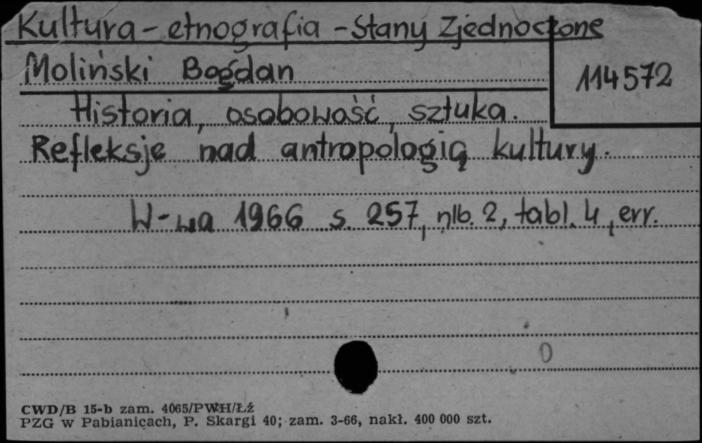 Kultura - etnografia - Stany Zjednoczone
Moliński Bogdan
114572
Historia, osobowość, sztuka.
Refleksje nad antropologią kultury.
W-wa 1966 s. 257, nlb. 2, tabl. 4, err.
0
CWD/B 15-b zam. 4065/PWH/Łź
PZG w Pabianicach, P. Skargi 40; zam. 3-66, nakł. 400 000 szt.